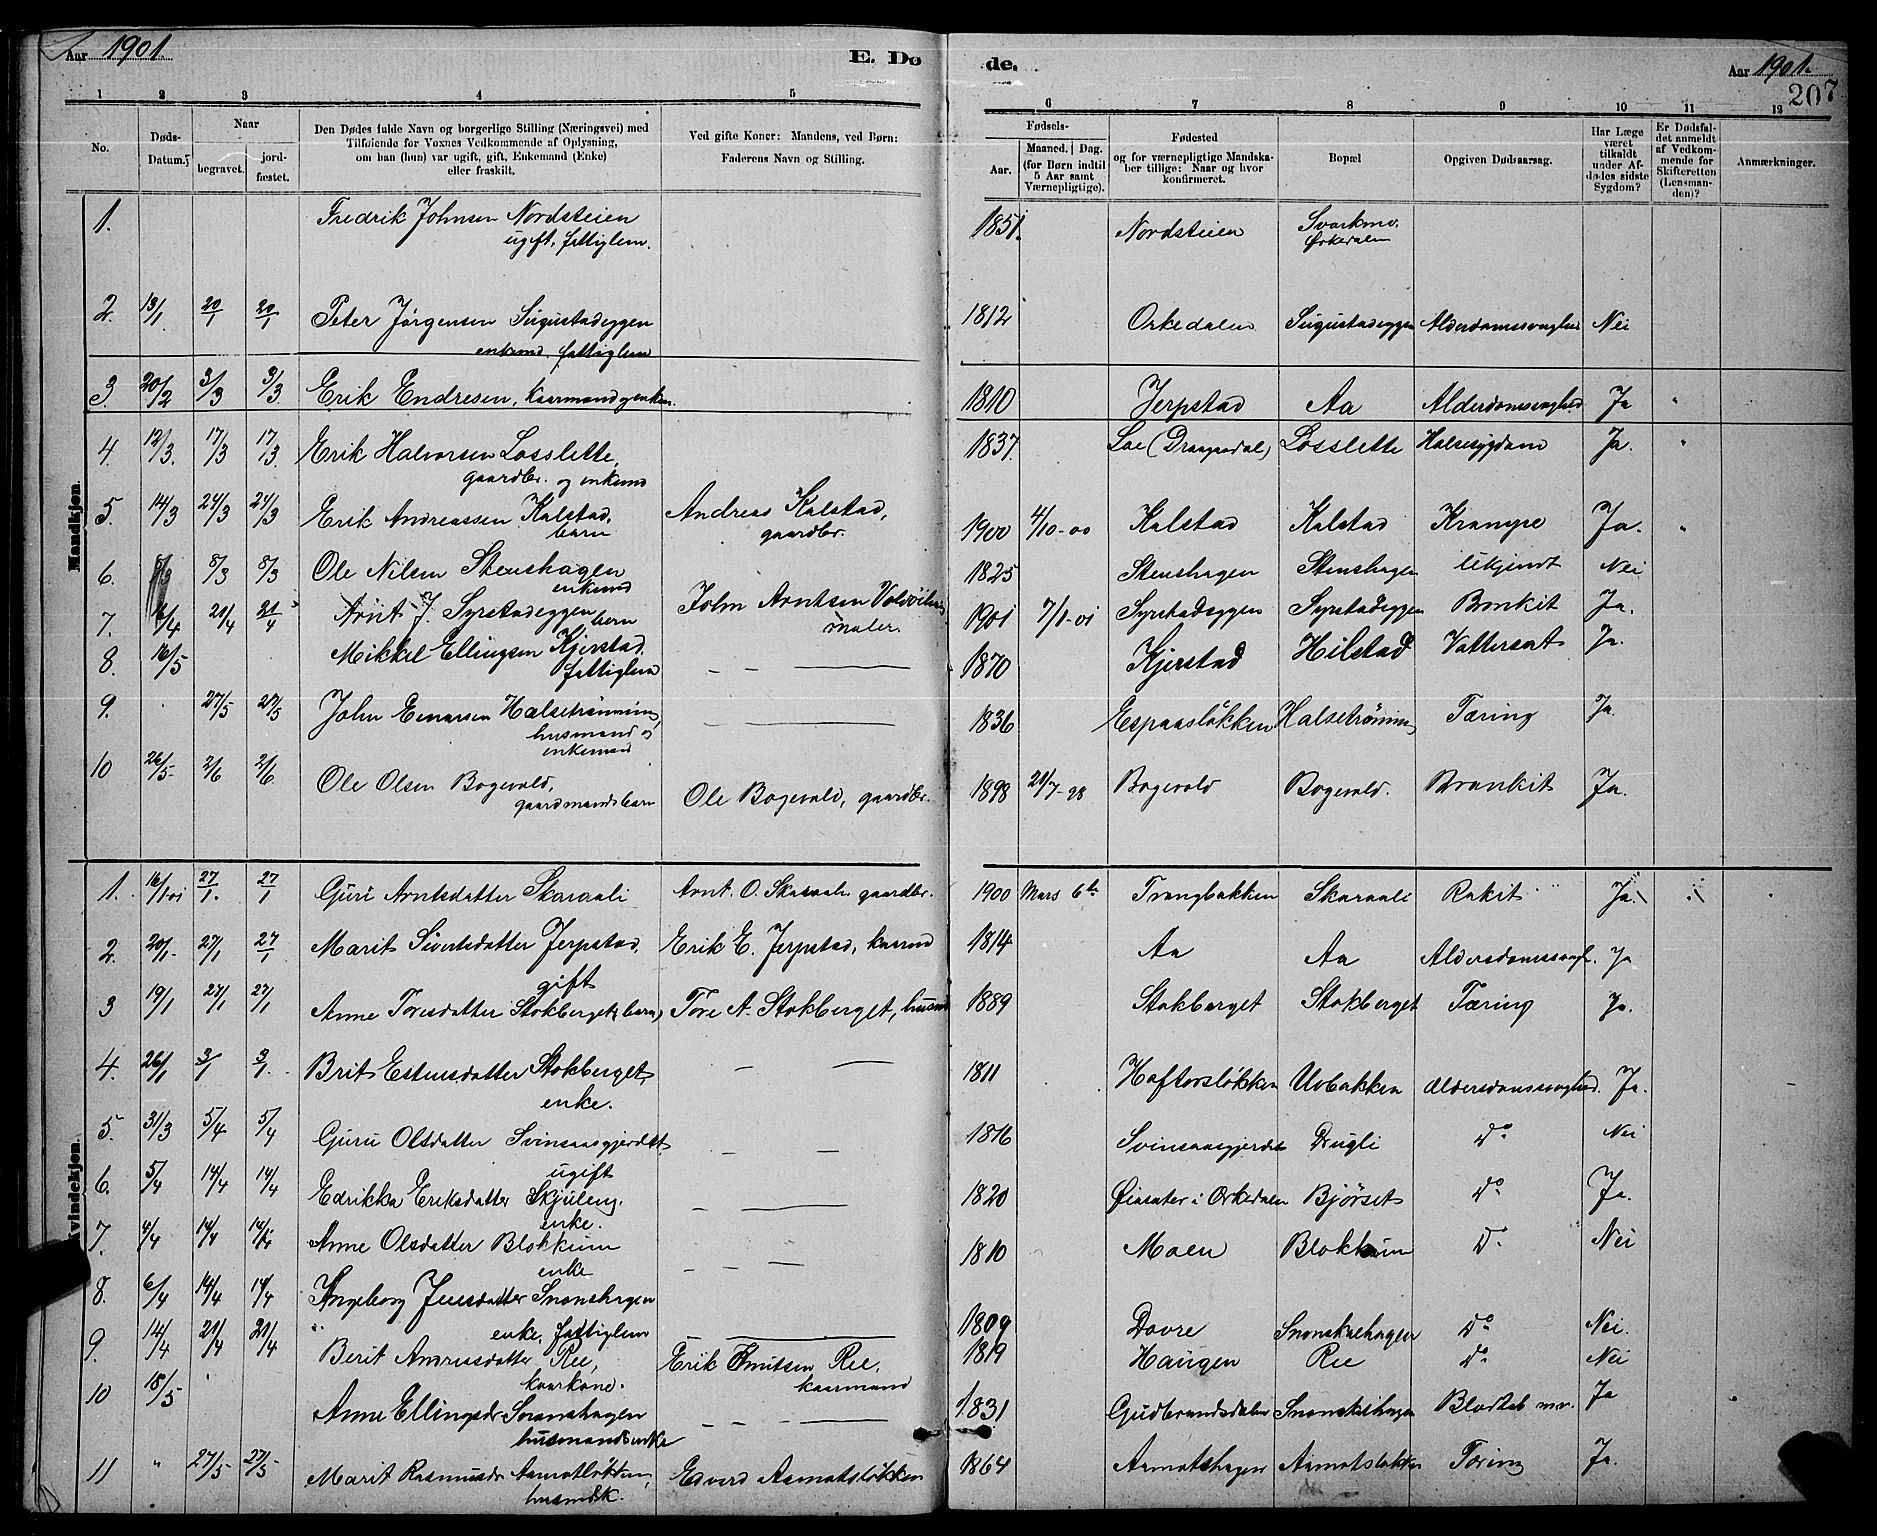 Aar 1901. E. Dø
de. Aar 1901.
207
1 2 3 4 5
6 7 8 9 10 11 12
No. Døds-Datum. Naar begravet. jordfæstet. Den Dødes fulde Navn og borgerlige Stilling (Næringsvei) med Tilføiende for Voxnes Vedkommende af Oplysning, om han (hun) var ugift, gift, Enkemand (Enke) eller fraskilt. Ved gifte Koner: Mandens, ved Børn: Faderens Navn og Stilling.
Fødsels- Aar. Maaned. Dag. (for Børn indtil 5 Aar samt Værnepligtige). Fødested og for værnepligtige Mandskaber tillige: Naar og hvor konfirmeret. Bopæl Opgiven Dødsaarsag. Har Læge været tilkaldt under Afdødes sidste Sygdom? Er Dødsfaldet anmeldt af Vedkommende for Skifteretten (Lensmanden)? Anmærkninger.
Mandkjøn.
1. Fredrik Johnsen Nordsteien 1851. Nordsteien Svorkmo.
ugift, fattiglem. Orkedalen
2. 13/1 20/1 20/1 Peter Jørgensen Sugustadeggen 1812 Orkedalen Sugustadeggen Alderdomssvaghed Nei
enkemd. fattiglem
3. 20/2 3/3 3/3 Erik Endresen, kaarmand 1810 Jerpstad Aa Alderdomssvaghed Ja "
4. 12/3. 17/3 17/3. Erik Halvorsen Losslette, 1837. Loe (Draguadal) Losslette Halsesygdom Ja. "
gaardbr. og enkemd
5. 14/3 24/3 24/3 Erik Andreassen Kalstad, Andreas Kalstad, 1900 4/10-00 Kalstad Kalstad Krampe Ja. "
barn gaardbr.
6. 8/3 8/3 Ole Nilsen Stenshagen 1825 Stenshagen Stenshagen Ukjendt Nei
enkemd
7. 21/4 21/4 Arnt J. Syrstadeggen John Arntsen 1901 7/1-01 Syrstadeggen Syrstadeggen Bronkit Ja.
barn maler.
8. 16/5 Mikkel Ellingsen Kjerstad, 1870 Kjerstad Hilstad Vattersot Ja.
fattiglem
9. 27/5 27/5 John Einarsen Halsetrønning, 1836 Espaasløkken Halsetrønning Tæring Ja.
husmand og
enkemand
10 26/5 2/6 2/6. Ole Olsen Bogevold, Ole Bogevold, gaardbr. 1898 21/7-98 Bogevold Bogevold. Bronkit Ja.
gaardmandsbarn
Kvindekjøn.
1. 16/1 01 27/1. 27/1 Guri Arntsdatter Skaraali Arnt. O. Skaraali gaardbr. 1900 Mars 6te Trangbakken Skaraali Rakit Ja.
2. 20/1. 27/1 27/1 Marit Sivertsdatter Jerpstad, Erik E. Jerpstad, kaarmd 1814 Aa Aa Aldersdomssvagh. Ja
gift
3 19/1 27/1 27/1 Anne Toresdatter Stokberget, barn, Tore A. Stokberget, husmd 1889 Stokberget Stokberget Tæring Ja.
4. 26/1 3/1 3/1. Brit Estensdatter Stokberget, 1811 Haftorsløkken Uvbakken Aldersdomssvaghed. Ja.
enke.
5. 31/3 5/4 5/4 Guru Olsdatter Svinsaasgjerdet 1816 Svinsaasgjerdet Drugli Do. Nei
ugift
6. 5/4 14/4 14/4 Edrikka Eriksdatter Skjuleng. 1820 Øiasæter i Orkedalen Bjørset Do Ja.
enke.
7. 4/4 14/4 14/4 Anne Olsdatter Blokkum 1810 Moen Blokkum Do. Nei
enke
8. 6/4 14/4 14/4 Ingeborg Jensdatter Snonshagen 1809 Dovre Snonskalhagen Do Nei.
enke. fattiglem
9. 14/4 21/4 21/4 Berit Andreasdatter Ree, Erik Knutsen Ree. 1819 Haugen Ree Do. Nei
kaarkone. kaarmand
10 18/5 Anne Ellingsdr 1831 Gudbrandsdalen Snonskalhagen Blodtab m.v. Ja
husmandsenke
11 " 27/5 27/5 Marit Rasmusdr Aamotsløkken, Edvard Aamotsløkken 1864 Aamotshagen Aamotsløkken Tæring Ja.
husmdsk.